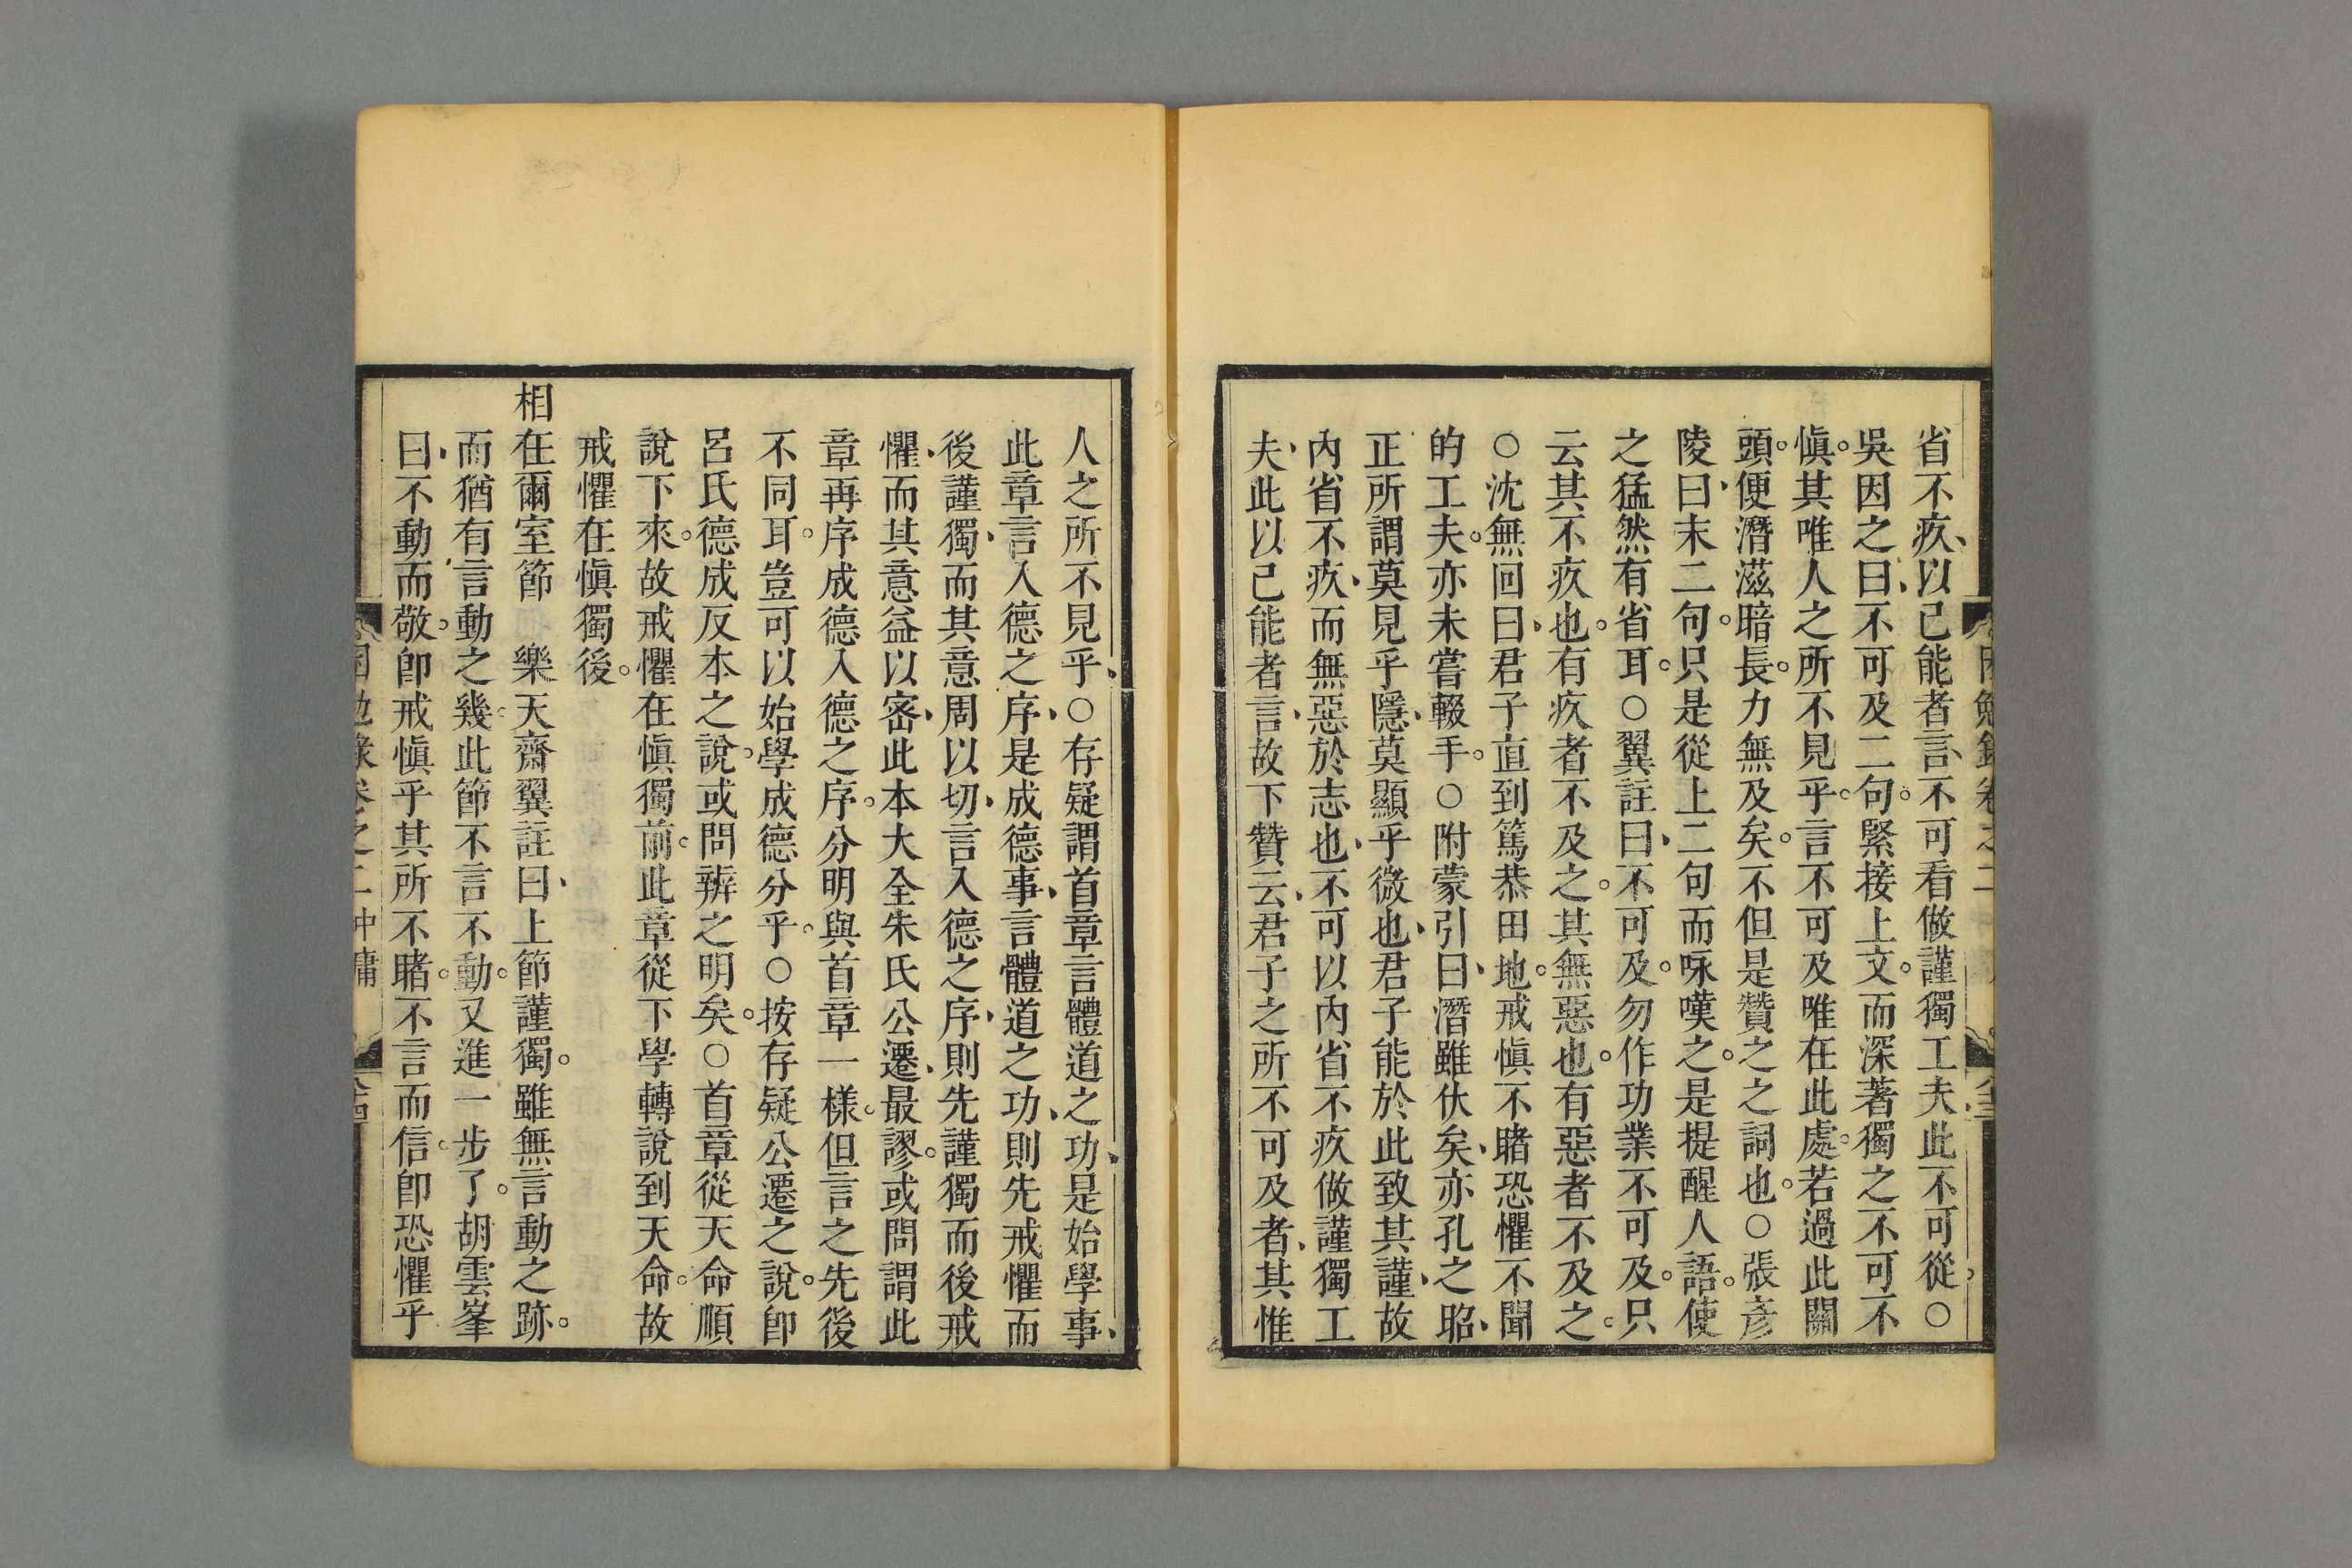 省不疚、以己能者言、不可看做謹獨工夫此不可從、○
吳因之曰、不可及二句。緊接上文。而深著獨之不可不
愼。其唯人之所不見乎。言不可及唯在此處。若過此關
頭。便潛滋暗長。力無及矣。不但是贊之之詞也。○張彥
陵曰、末二句。只是從上二句而咏嘆之。是提醒人語。使
之猛然有省耳。○翼註曰、不可及。勿作功業不可及。只
云其不疚也。有疚者不及之。其無惡也。有惡者不及之。
○沈無回曰、君子直到篤恭田地。戒愼不睹恐懼不聞
的工夫。亦未嘗輟手。○附蒙引曰、潛雖伏矣、亦孔之昭、
正所謂莫見乎隱、莫顯乎微也、君子能於此致其謹、故
內省不疚、而無惡於志也、不可以內省不疚做謹獨工
夫、此以己能者言、故下贊云、君子之所不可及者、其惟
人之所不見乎、○存疑謂首章言體道之功、是始學事、
此章言入德之序、是成德事、言體道之功、則先戒懼而
後謹獨、而其意周以切、言入德之序、則先謹獨而後戒
懼、而其意益以密、此本大全朱氏公遷、最謬。或問謂此
章再序成德入德之序。分明與首章一樣。但言之先後
不同耳。豈可以始學成德分乎。○按存疑公遷之說。卽
呂氏德成反本之說。或問辨之明矣。○首章從天命順
說下來。故戒懼在愼獨前。此章從下學轉說到天命。故
戒懼在愼獨後。
相在爾室節　樂天齋翼註曰、上節謹獨。雖無言動之跡。
而猶有言動之幾。此節不言不動。又進一步了。胡雲峯
曰、不動而敬。卽戒愼乎其所不睹。不言而信。卽恐懼乎